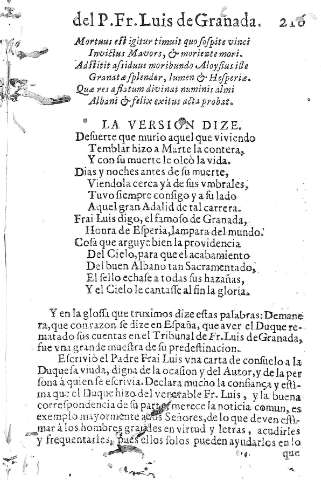 del P. Fr. Luis de Granada. 216
Mortuus est igitur timuit quo sospite vinci
Invictus Mavors, & moriente mori.
Adstitit assiduus moribundo Aloysius iste
Granatæ splendor, lumen & Hesperiæ.
Quæ res afflatum divinas numinis almi
Albani & felix exitus acta probat.
LA VERSION DIZE.
Desuerte que murio aquel que viviendo
Temblar hizo a Marte la contera,
Y con su muerte le
Dias y noches antes de su muerte,
Viendola cerca yà de sus vmbrales,
Tuvo siempre consigo y a su lado
Aquel gran Adalid de tal carrera.
Frai Luis digo, el famoso de Granada,
Honra de Esperia, lampara del mundo.
Cosa que arguye bien la providencia
Del Cielo, para que el acabamiento
Del buen Albano tan Sacramentado,
El sello echase a todas sus hazañas,
Y el Cielo le cantasse al fin la gloria.
Y en la glossa que truximos dize estas palabras: Demane
ra, que con razon se dize en España, que aver el Duque re-
matado sus cuentas en el Tribunal de Fr. Luis de Granada,
fue vna grande muestra de su predestinacion.
Escrivió el Padre Frai Luis vna carta de consuelo a la
Duquesa viuda, digna de la ocasion y del Autor, y de la per
sona à quien se escrivia. Declara mucho la confiança y esti-
ma que el Duque hizo del venerable Fr. Luis, y la buena
correspondencia de su parte, merece la noticia comun, es
exemplo mayormente a los Señores, de lo que deven esti-
mar à los hombres grandes en virtud y letras, acudirles
y frequentarles, pues ellos solos pueden ayudarlos en lo
que